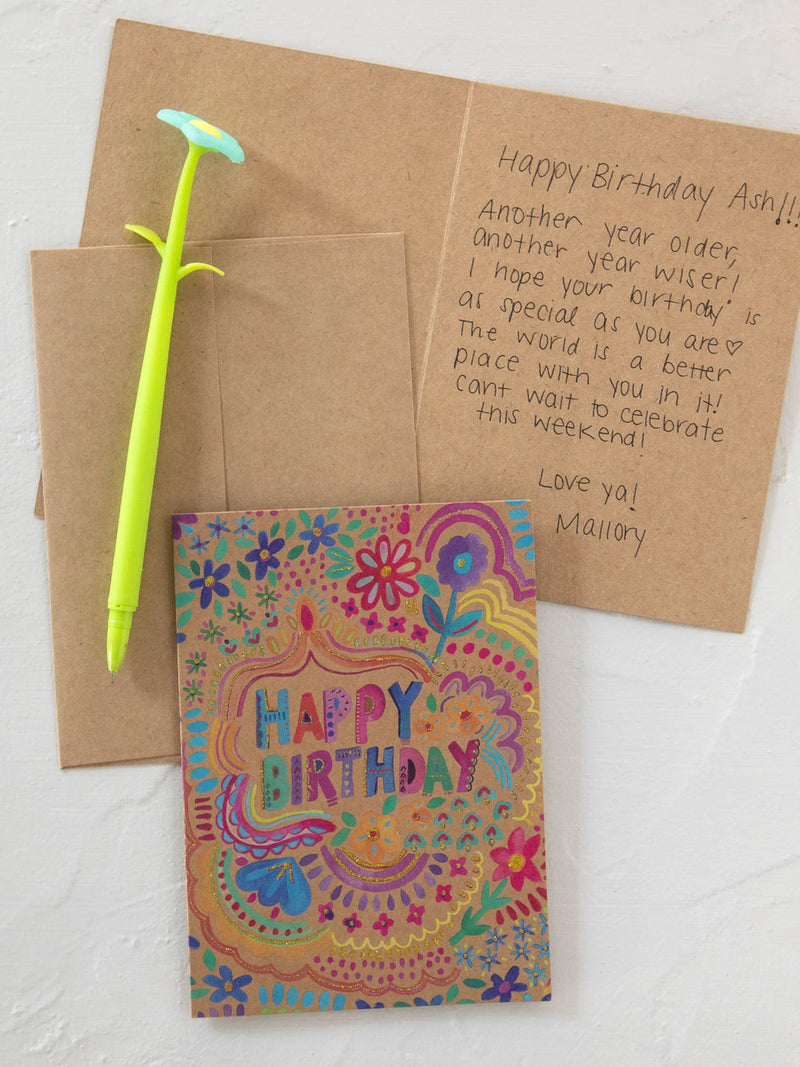 Happy Birthday Ash!!!
Another year older,
another year wiser!
I hope your birthday is
as special as you are ♡
The world is a better
place with you in it!
cant wait to celebrate
this weekend!
Love ya!
Mallory
HAPPY
BIRTHDAY